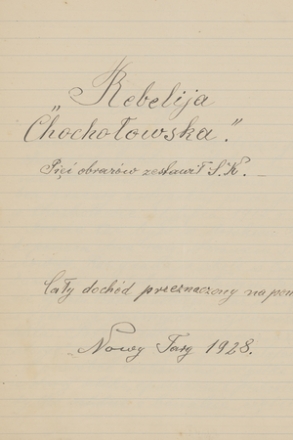 Rebelija
„Chochołowska".
Pięć obrazów zestawił S. K. —
Cały dochód przeznaczony na pom
Nowy Targ 1928.